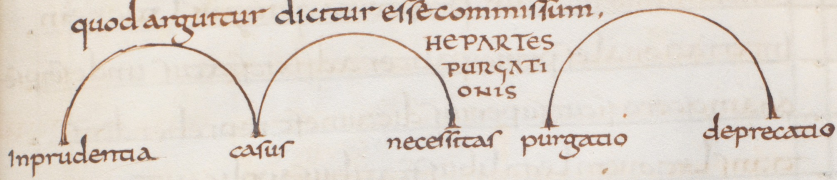 quod arguitur dicitur esse commissum.
HE PARTES
PURGATI
ONIS
inprudentia casus necessitas purgatio deprecatio